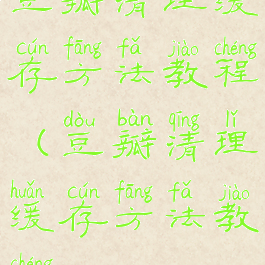 豆瓣清理缓
cún fāng fǎ jiào chéng
存方法教程
dòu bàn qīng lǐ
（豆瓣清理
huǎn cún fāng fǎ jiào
缓存方法教
chéng